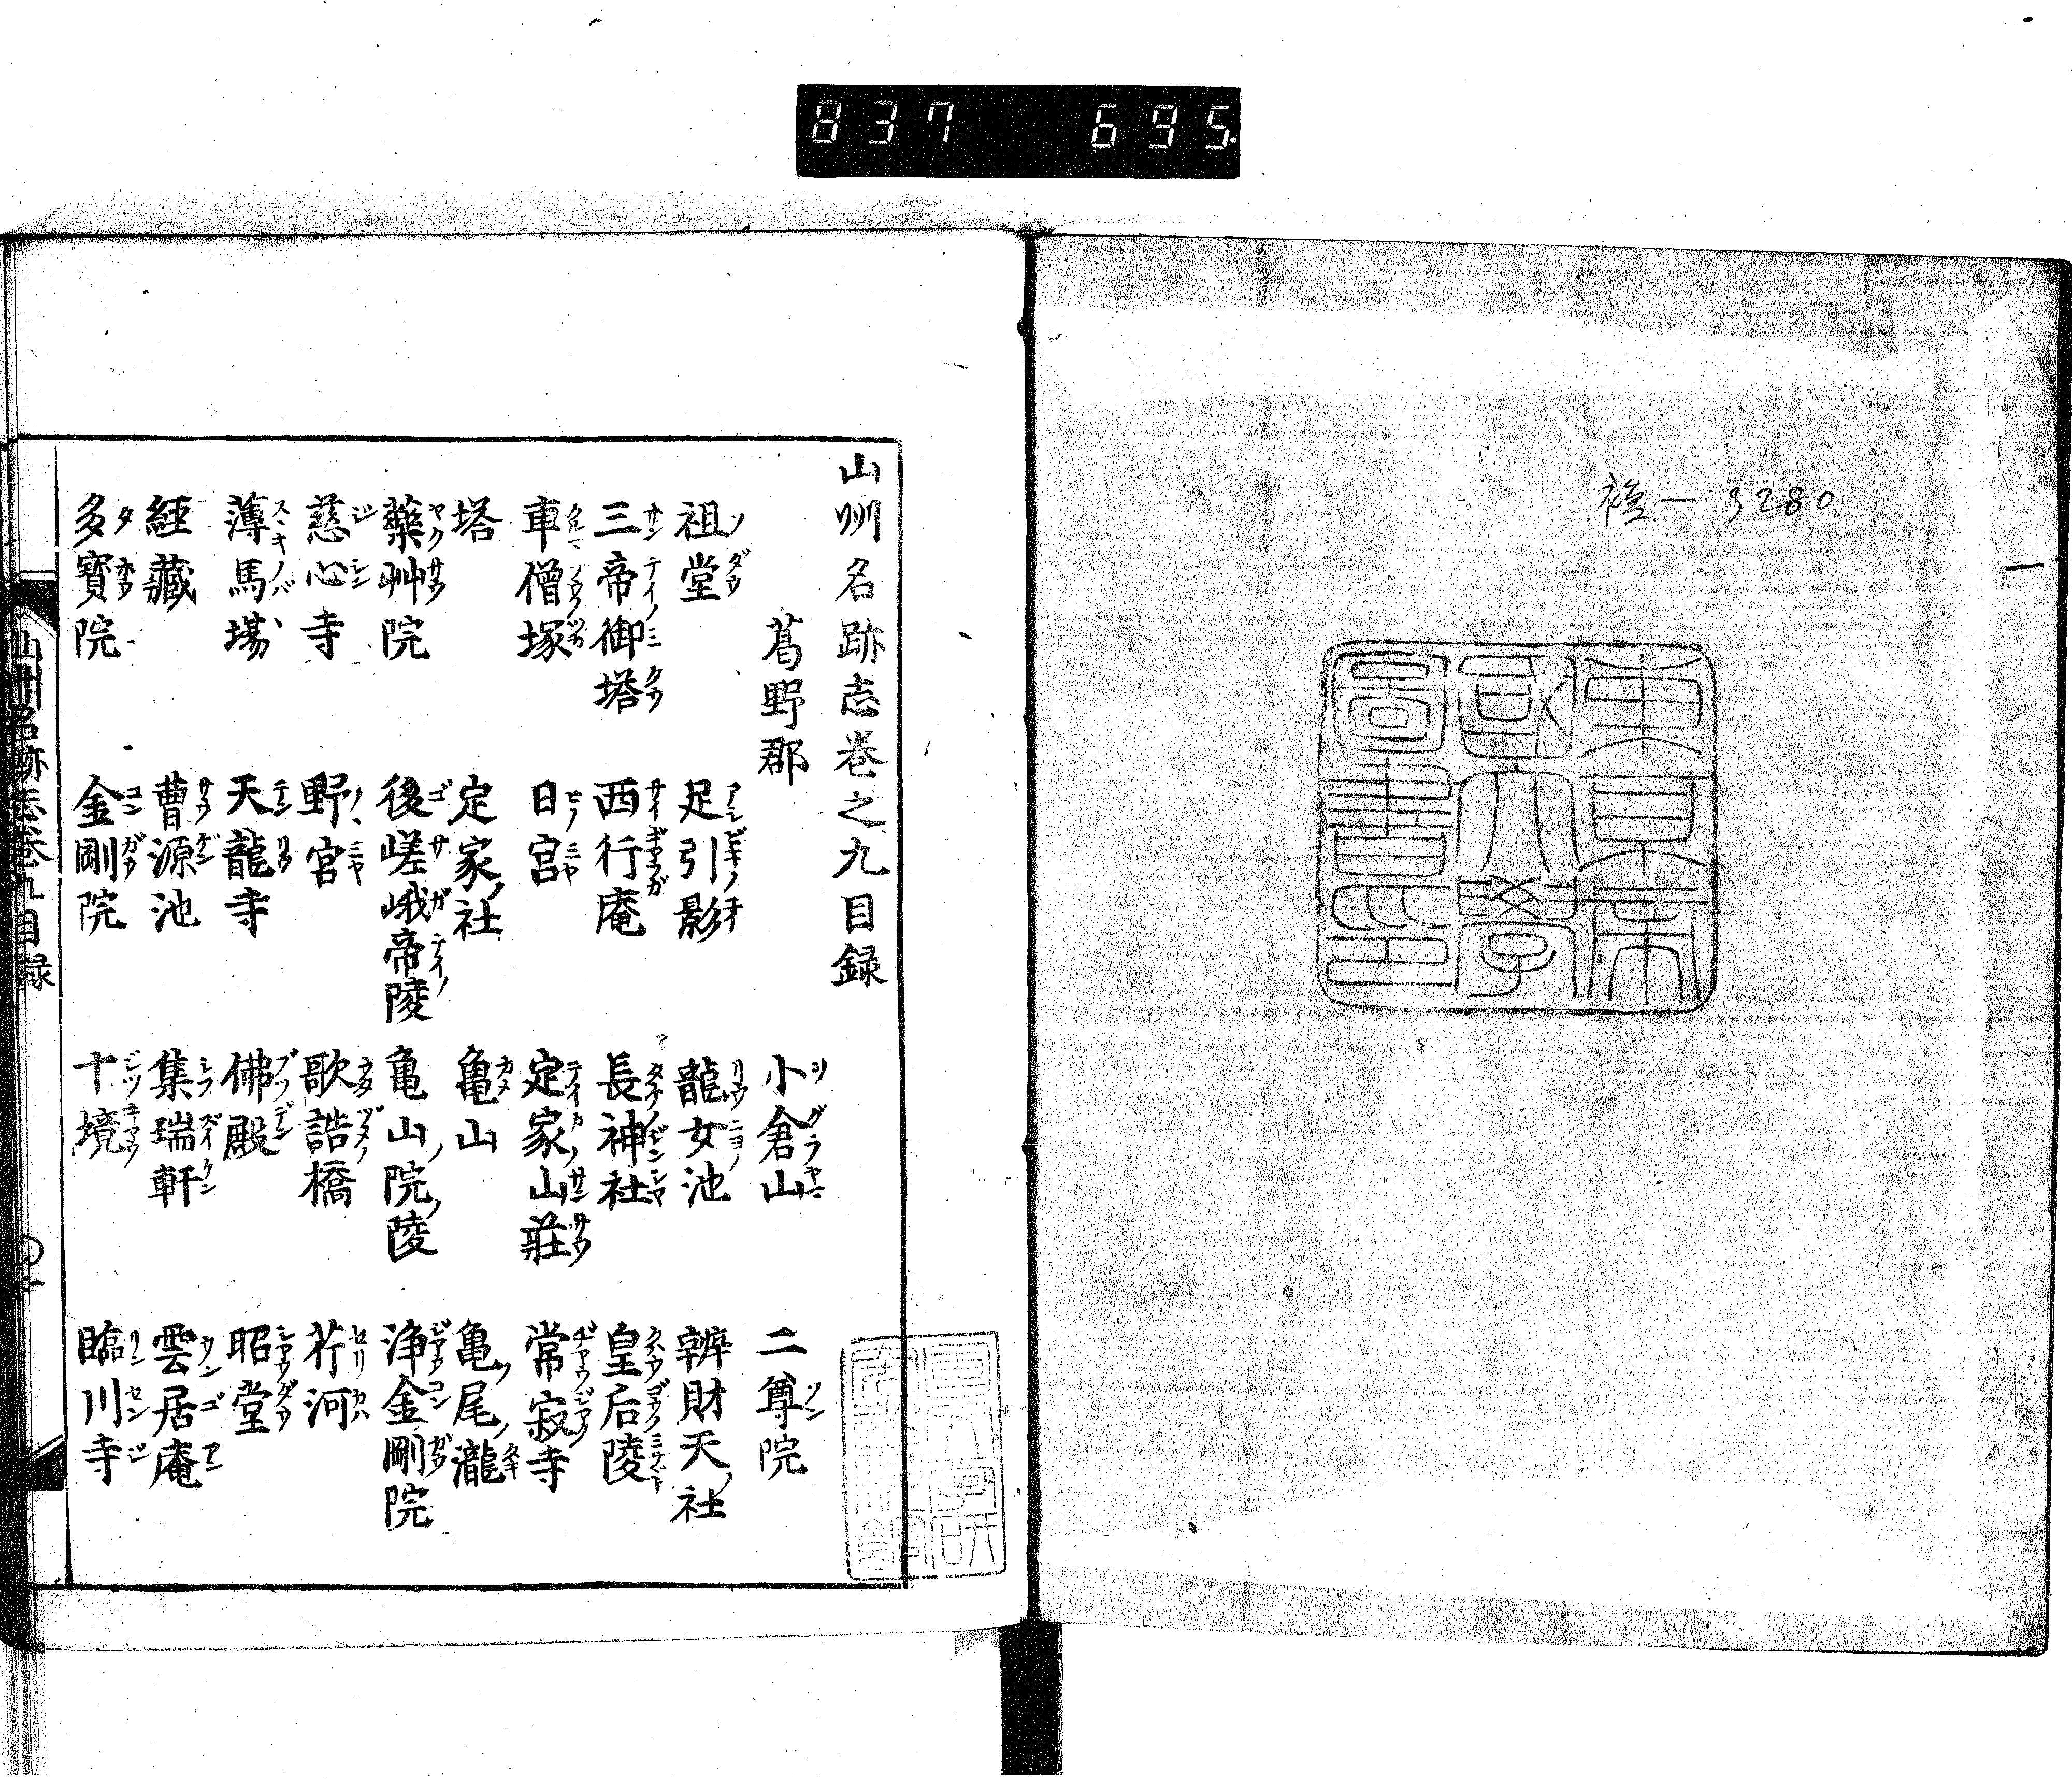 837 695.
一3280
東京帝
國大學
圖書印
山州名跡志巻之九目録
葛野郡 小倉山 二尊院
祖堂 足引影 龍女池 辨財天社
三帝御塔 西行庵 長神社 皇后陵
車僧塚 日宮 定家山荘 常寂寺
塔 定家社 亀山 亀尾瀧
藥艸院 後嵯峨帝陵 亀山院陵 浄金剛院
慈心寺 野宮 歌詰橋 芹河
薄馬場 天龍寺 佛殿 昭堂
経藏 曹源池 集瑞軒 雲居庵
多寶院 金剛院 十境 臨川寺
山州名跡志巻九目録